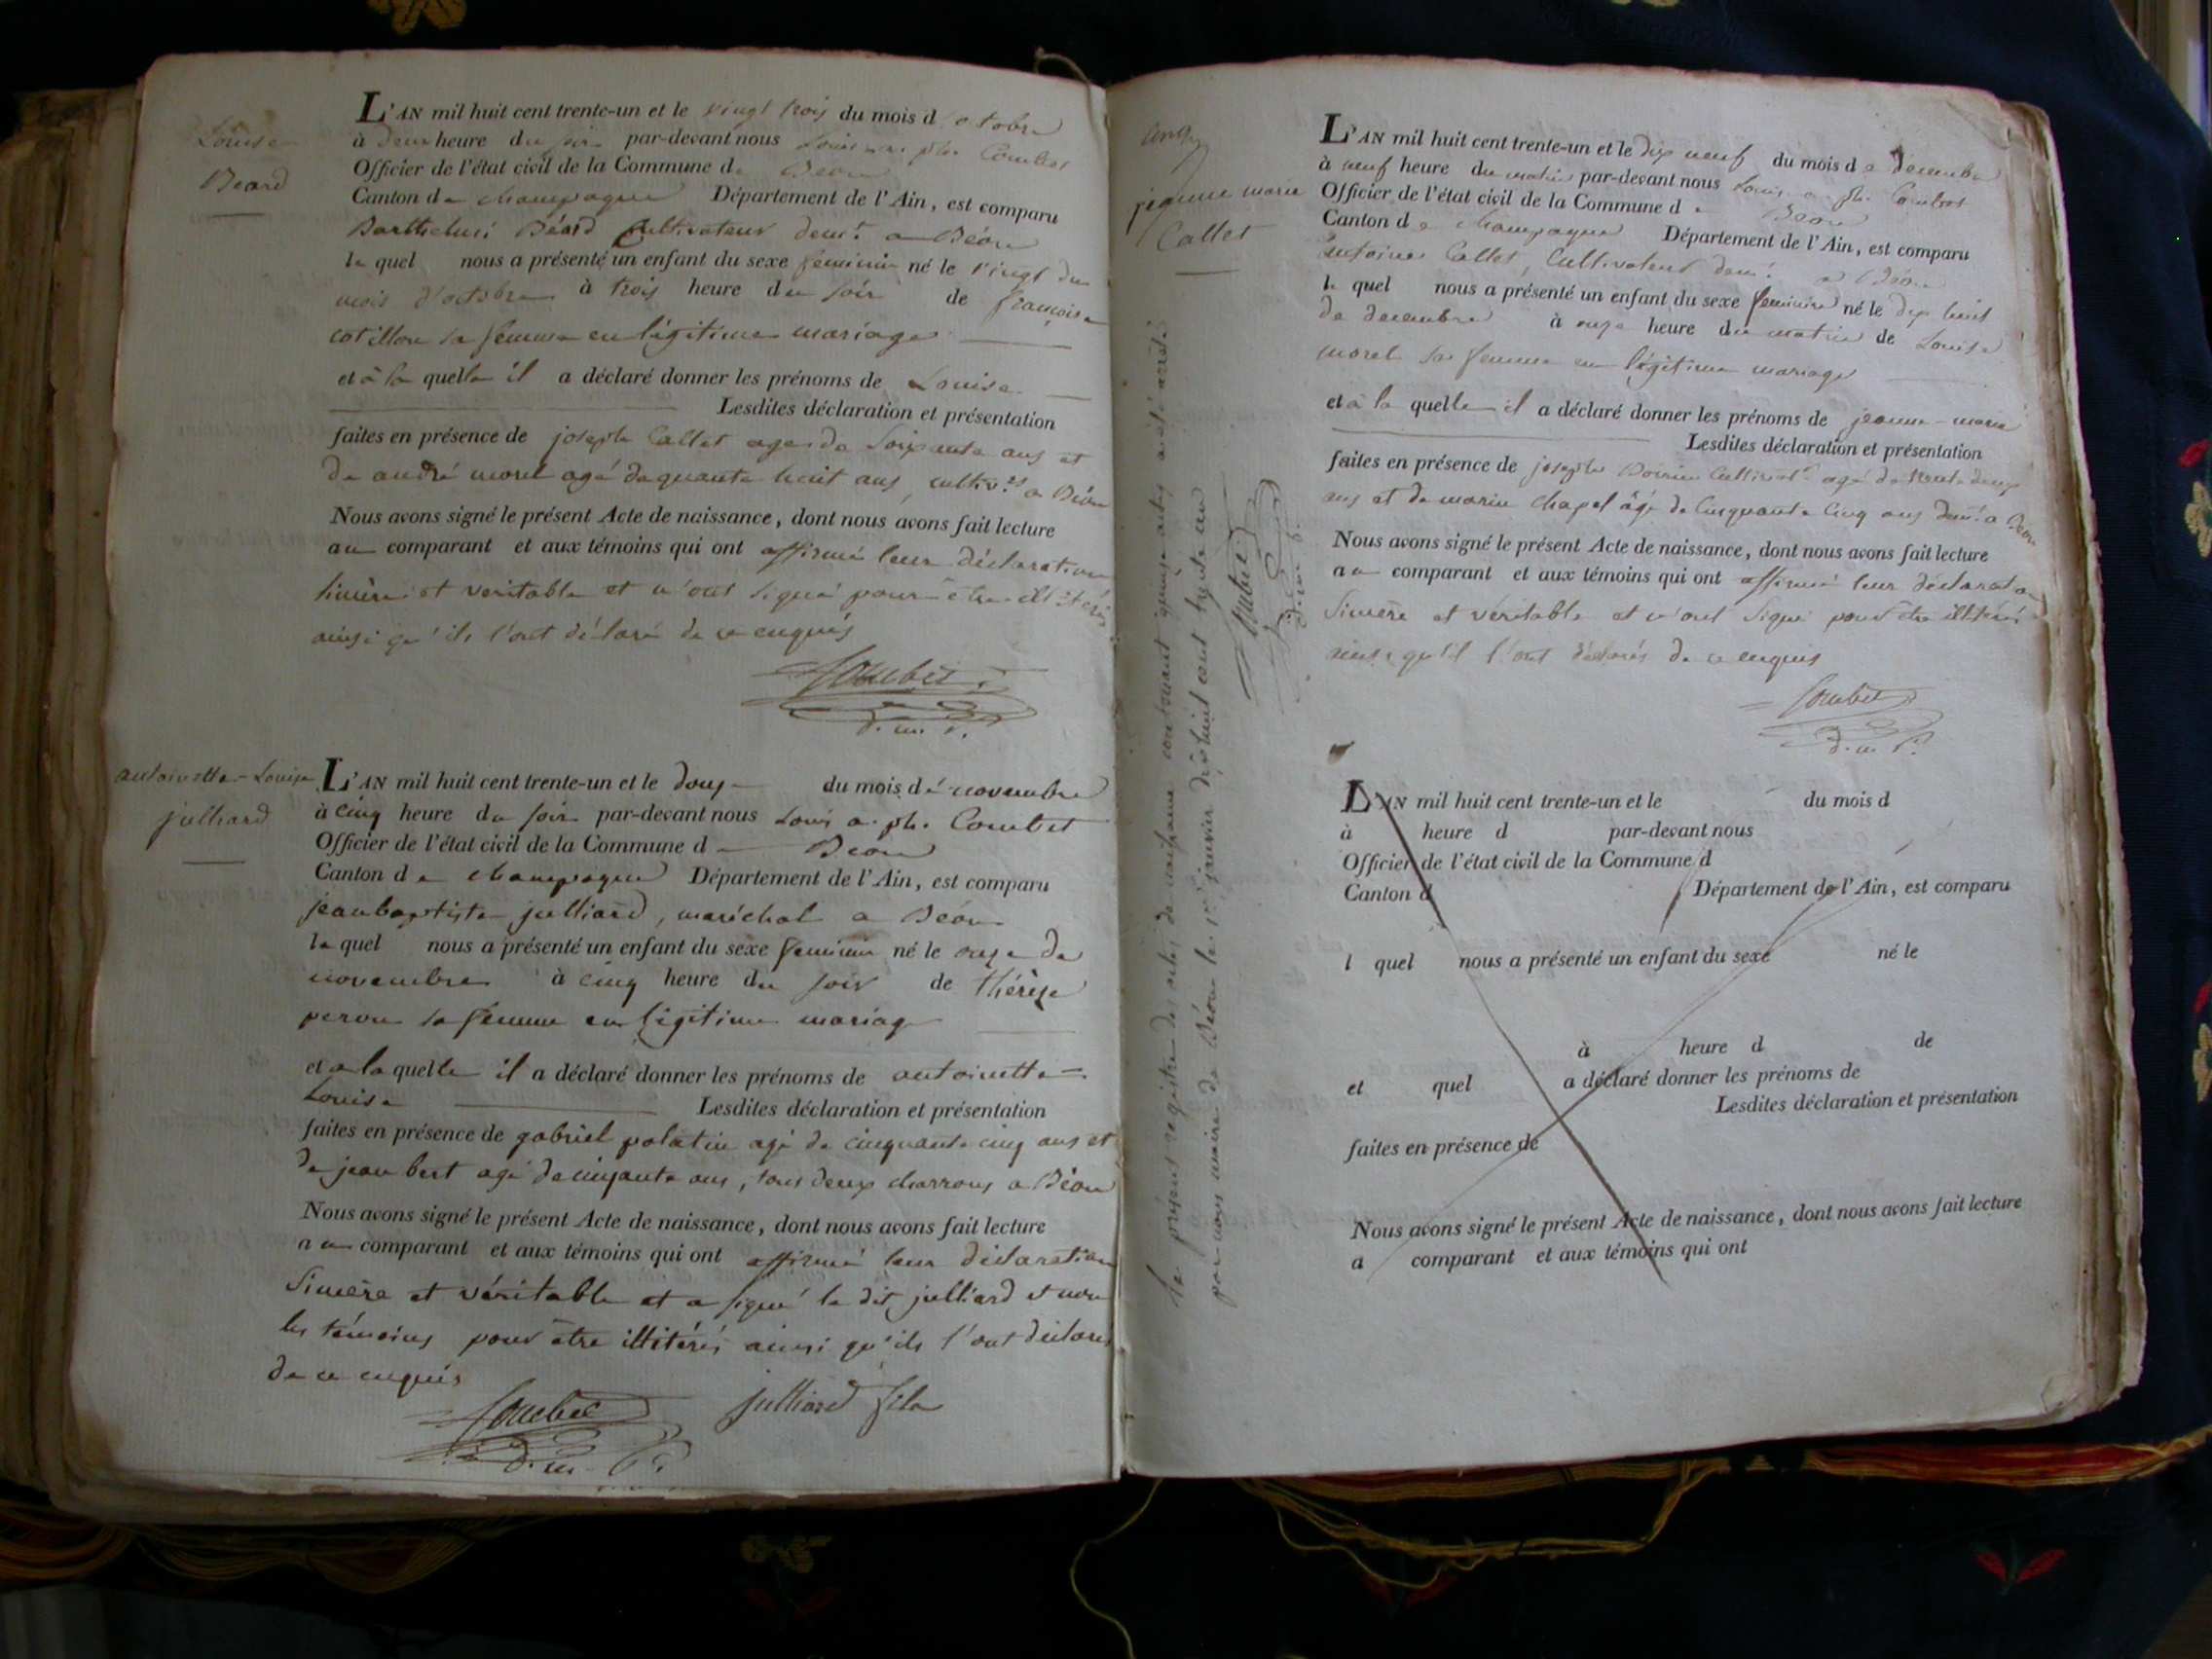 Louise
Béard
L'AN mil huit cent trente-un et le vingt trois du mois d'octobre
à deux heure du soir par-devant nous Louis a. ph. Combet
Officier de l'état civil de la Commune de Béon
Canton de champagne Département de l'Ain, est comparu
Barthelmi Béard Cultivateur demt a Béon
le quel nous a présenté un enfant du sexe feminin né le vingt du
mois d'octobre à trois heure du soir de françoise
cotillon sa femme en légitime mariage
et à la quelle il a déclaré donner les prénoms de Louise
Lesdites déclaration et présentation
faites en présence de joseph Callet age de soixante ans et
de andré morel agé de quante huit ans, cultivrs a Béon
Nous avons signé le présent Acte de naissance, dont nous avons fait lecture
au comparant et aux témoins qui ont affirmé leur déclaration
sincère et veritable et n'ont signé pour être illitérés
ainsi qu'ils l'ont déclaré de ce enquis
Combet
d. m. P.
antoinette-Louise
julliard
L'AN mil huit cent trente-un et le douze du mois de novembre
à cinq heure du soir par-devant nous Louis a. ph. Combet
Officier de l'état civil de la Commune d Béon
Canton de champagne Département de l'Ain, est comparu
jeanbaptiste julliard, maréchal a Béon
le quel nous a présenté un enfant du sexe feminin né le onze de
novembre à cinq heure du soir de thérèse
peron sa femme en légitime mariage
et a la quelle il a déclaré donner les prénoms de antoinette-
Louise Lesdites déclaration et présentation
faites en présence de gabriel polatin agé de cinquante cinq ans et
de jean bert agé de cinqante ans, tous deux charrons a Béon
Nous avons signé le présent Acte de naissance, dont nous avons fait lecture
au comparant et aux témoins qui ont affirmé leur déclaration
Sincère et véritable et a signé le dit julliard et non
les témoins pour être illitérés ainsi qu'ils l'ont déclaré
de ce enquis
Combet julliard fils
d. m. P.
jeanne marie
Callet
Le présent registre des actes de naissance contenant quinze actes a été arrêté
par nous maire de Béon le 1er janvier dix huit cent trente
Combet
L'AN mil huit cent trente-un et le dix neuf du mois de decembre
à neuf heure du matin par-devant nous Louis a. ph. Combet
Officier de l'état civil de la Commune de Béon
Canton de champagne Département de l'Ain, est comparu
antoine Callet, Cultivateur demt a Béon
le quel nous a présenté un enfant du sexe feminin né le dix huit
de decembre à onze heure du matin de Louise
morel sa femme en légitime mariage
et à la quelle il a déclaré donner les prénoms de jeanne-marie
Lesdites déclaration et présentation
faites en présence de joseph agé de trente deux
ans et de marin Chapel âgé de Cinquante Cinq ans demt a Béon
Nous avons signé le présent Acte de naissance, dont nous avons fait lecture
au comparant et aux témoins qui ont affirmé leur déclaration
Sincère et véritable et n'ont signé pour être illitérés
ainsi qu'il l'ont déclarés de ce enquis
Combet
d. m. P.
L'AN mil huit cent trente-un et le du mois d
à heure d par-devant nous
Officier de l'état civil de la Commune d
Canton d Département de l'Ain, est comparu
l quel nous a présenté un enfant du sexe né le
à heure d de
et quel a déclaré donner les prénoms de
Lesdites déclaration et présentation
faites en présence de
Nous avons signé le présent Acte de naissance, dont nous avons fait lecture
a comparant et aux témoins qui ont